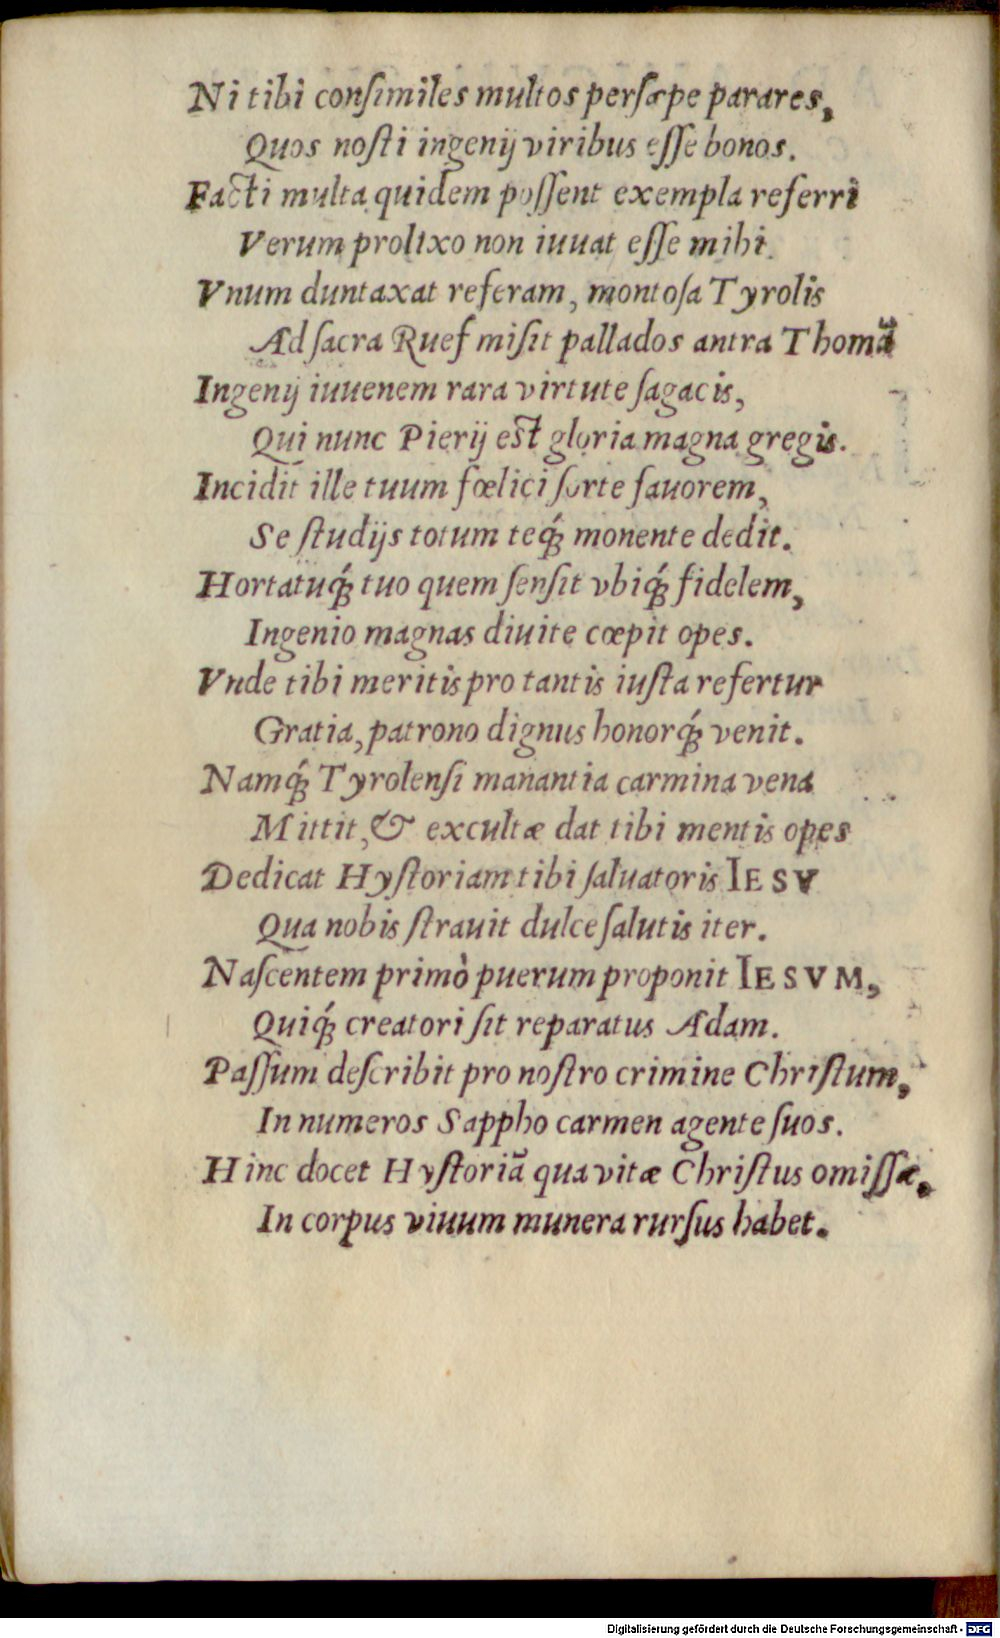 Ni tibi conſimiles multos perſæpe parares,
Quos noſti ingenij viribus eſſe bonos.
Facti multa quidem poſſent exempla referri
Verum prolixo non iuuat eſſe mihi.
Vnum duntaxat referam, montoſa Tyrolis
Ad ſacra Ruef miſit pallados antra Thomã
Ingenij iuuenem rara virtute ſagacis,
Qui nunc Pierij eſt gloria magna gregis.
Incidit ille tuum fœlici ſorte fauorem,
Se ſtudijs totum teq́ꝫ monente dedit.
Hortatuq́ꝫ tuo quem ſenſit vbiq́ꝫ fidelem,
Ingenio magnas diuite cœpit opes.
Vnde tibi meritis pro tantis iuſta refertur
Gratia, patrono dignus honorq́ꝫ venit.
Namq́ꝫ Tyrolenſi manantia carmina vena
Mittit, & excultæ dat tibi mentis opes
Dedicat Hyſtoriam tibi ſaluatoris IESV
Qua nobis ſtrauit dulce ſalutis iter.
Naſcentem primò puerum proponit IESVM,
Quiq́ꝫ creatori ſit reparatus Adam.
Paſſum deſcribit pro noſtro crimine Chriſtum,
In numeros Sappho carmen agente ſuos.
Hinc docet Hyſtoriã qua vitæ Chriſtus omiſſæ,
In corpus viuum munera rurſus habet.
Digitalisierung gefördert durch die Deutsche Forschungsgemeinschaft - DFG